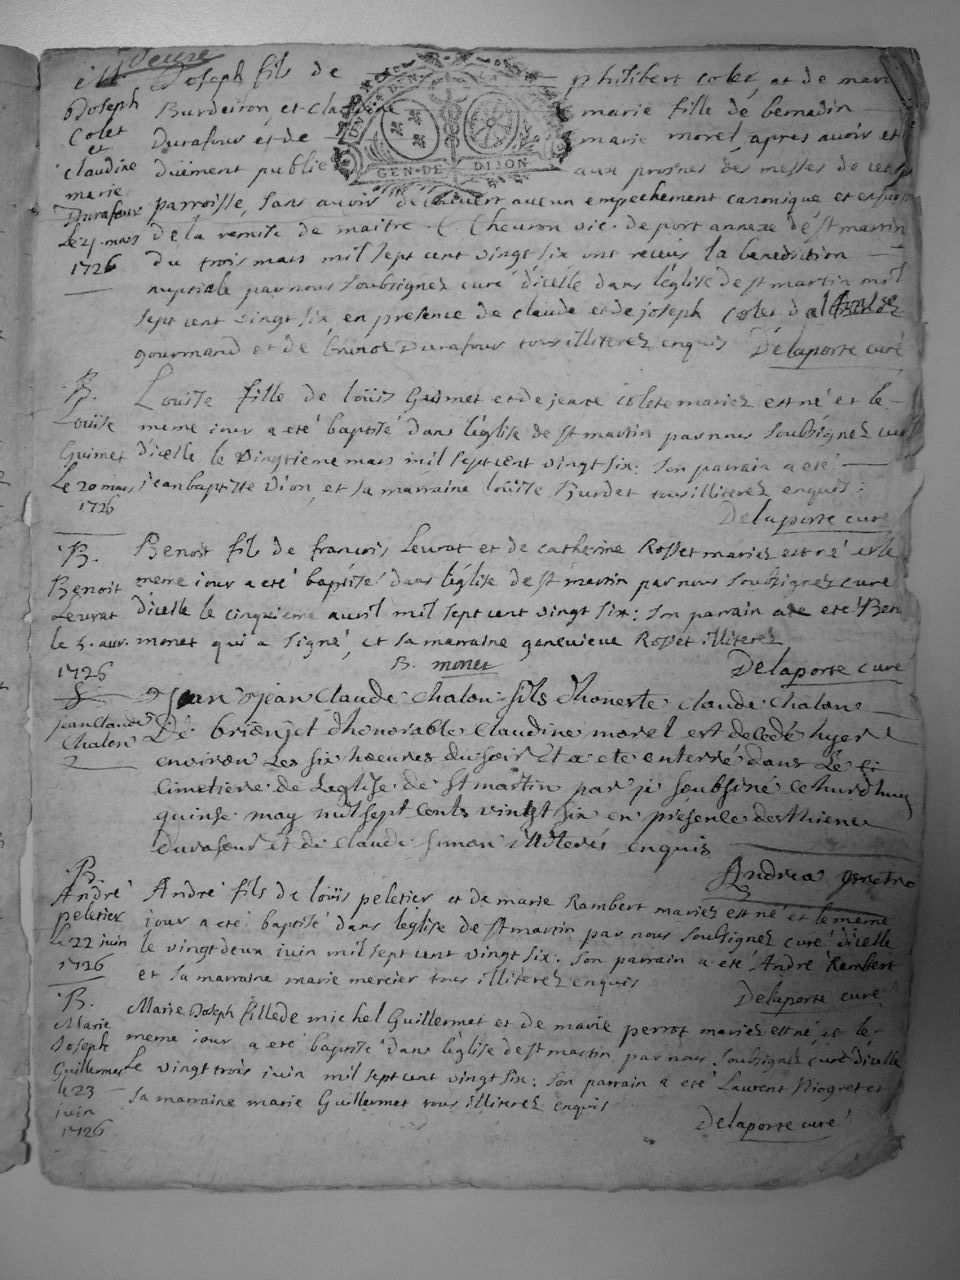 Joseph fils de philibert colet et de marie
Burdeiron, et claudine marie fille de bernadin
Durafour et de marie morel, apres avoir eté
düement publie aux prosnes des messes de cette
GEN·DE DIJON
parroisse, sans avoir decouvert aucun empechement canonique et
de la remise de maitre C. Cheuron vic. de port annexe de st martin
du trois mars mil sept cent vingt six ont receus la benediction
nuptiale par nous soubsignez curé d'icelle dans l'église de st martin mil
sept cent vingt six en presence de claude et de joseph colet d
gourmand et de Durafour tous illiterez enquis Delaporte curé
Joseph
Colet
et
claudine
marie
Durafour
Le 21 mars
1726
B.
Loüise
Guimet
Le 20 mars
1726
Loüise fille de loüis Guimet et de jeane colete mariez est né et le
meme iour a eté baptisé dans l'église de st martin par nous soubsignez curé
d'icelle le vingtieme mars mil sept cent vingt six: son parrain a eté
jean baptiste Dion, et sa marraine loüise Burdet tous illiterez enquis:
Delaporte curé
B.
Benoit
Leurat
le 5. avr.
1726
Benoit fils de francois Leurat et de catherine Rosset mariez est né et le
meme iour a eté baptisé dans l'église de st martin par nous soubsignez curé
d'icelle le cinquieme avril mil sept cent vingt six: son parrain a eté Ben
monet qui a signé, et sa marraine genevieve Rosset illiterez
B. monet Delaporte curé
jean Claude
Chalon
jean Claude Chalon fils d'honeste claude Chalon
De brionjet d'honorable Claudine morel est decedé hyer
environ les six hoeures du soir et a ete enterré dans le ci
Cimetiere de Leglise de st martin par je soubsiné ce
quinse may mil sept cents vingt six en présence
durafour et de claude simon illiterés enquis
Andrea
B.
André
peletier
le 22 juin
1726
André fils de loüis peletier et de marie Rambert mariez est né et le meme
iour a eté baptisé dans l'eglise de st martin par nous soubsignez curé d'icelle
le vingt deux iuin mil sept cent vingt six. son parrain a eté André Rambert
et sa marraine marie mercier tous illiterez enquis
Delaporte curé
B.
Marie
Joseph
Guillermet
le 23
juin
1726
Marie Joseph fille de michel Guillermet et de marie perrot mariez est né, et le
meme iour a eté baptisé dans l'église de st martin par nous soubsignez curé d'icelle
Le vingt trois iuin mil sept cent vingt six: son parrain a eté Laurent Niogret et
sa marraine marie Guillermet tous illiterez enquis
Delaporte curé